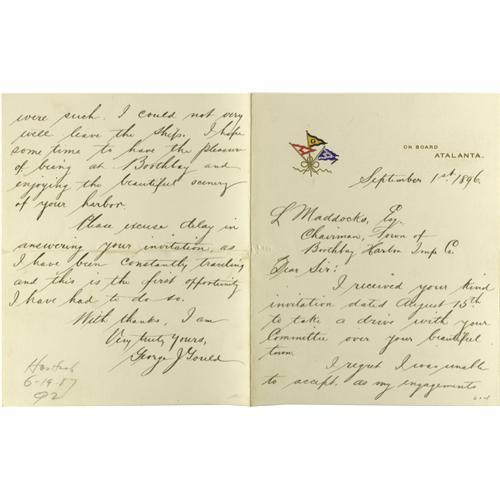 ON BOARD
ATALANTA.
September 1st 1896.
L Maddocks, Esq.
Chairman, Town of
Boothbay Harbor Imp. Co.
Dear Sir:
I received your kind
invitation dated August 15th
to take a drive with your
Committee over your beautiful
town.
I regret I was unable
to accept, as my engagements
were such I could not very
well leave the ship. I hope
some time to have the pleasure
of being at Boothbay and
enjoying the beautiful scenery
of your harbor.
Please excuse delay in
answering your invitation, as
I have been constantly traveling
and this is the first opportunity
I have had to do so.
With thanks, I am
Very truly yours,
George J Gould
6-19